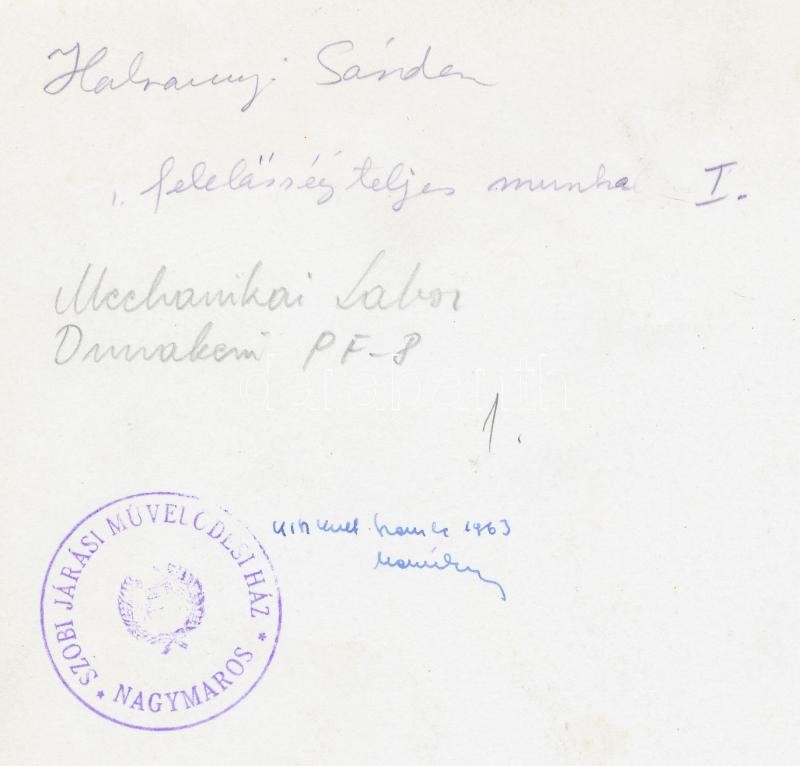 Sándor
„ felelősségteljes munka I.
Mechanikai Labor
Dunakeszi PF-8
darabanth
1.
1963
SZOBI JÁRÁSI MŰVELŐDÉSI HÁZ
* NAGYMAROS *